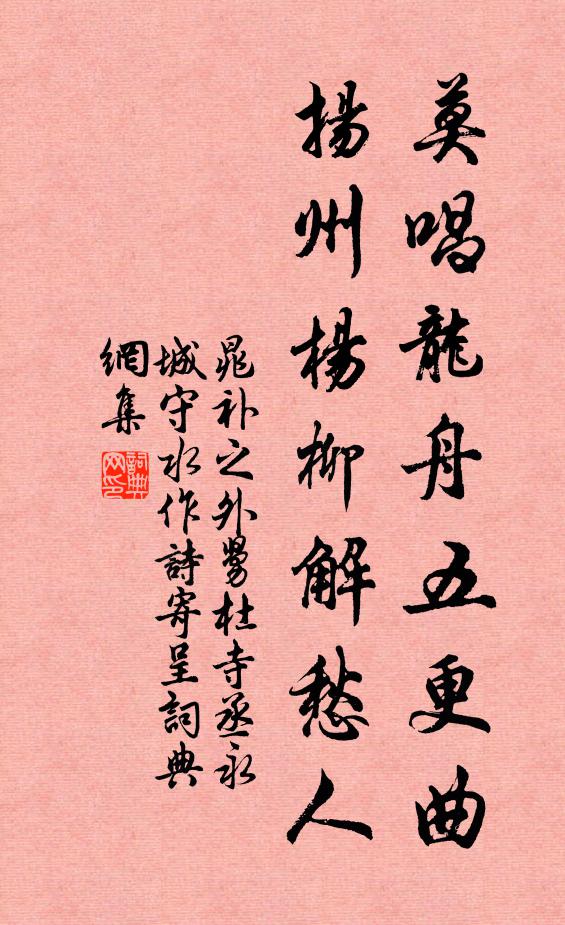 莫唱龍舟五更曲
揚州楊柳解愁人
晁补之外舅杜寺丞永
城守水作詩寄呈詞典
網集
詞典
网印